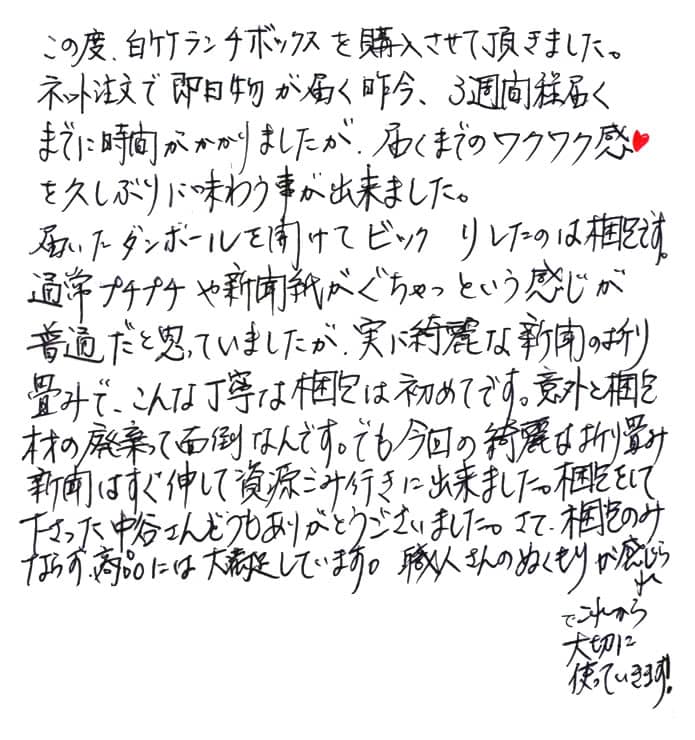 この度、白竹ランチボックスを購入させて頂きました。
ネット注文で即日物が届く昨今、3週間程届く
までに時間がかかりましたが、届くまでのワクワク感♥
を久しぶりに味わう事が出来ました。
届いたダンボールを開けてビックリしたのは梱包です。
通常プチプチや新聞紙がぐちゃっという感じが
普通だと思っていましたが、実に綺麗な新聞の折り
畳みで、こんな丁寧な梱包は初めてです。意外と梱包
材の廃棄って面倒なんです。でも今回の綺麗な折り畳み
新聞はすぐ伸して資源ごみ行きに出来ました。梱包をして
下さった中谷さんどうもありがとうございました。さて、梱包のみ
ならず、商品には大満足しています。職人さんのぬくもりが感じら
れ
でこれから
大切に
使っていきます!